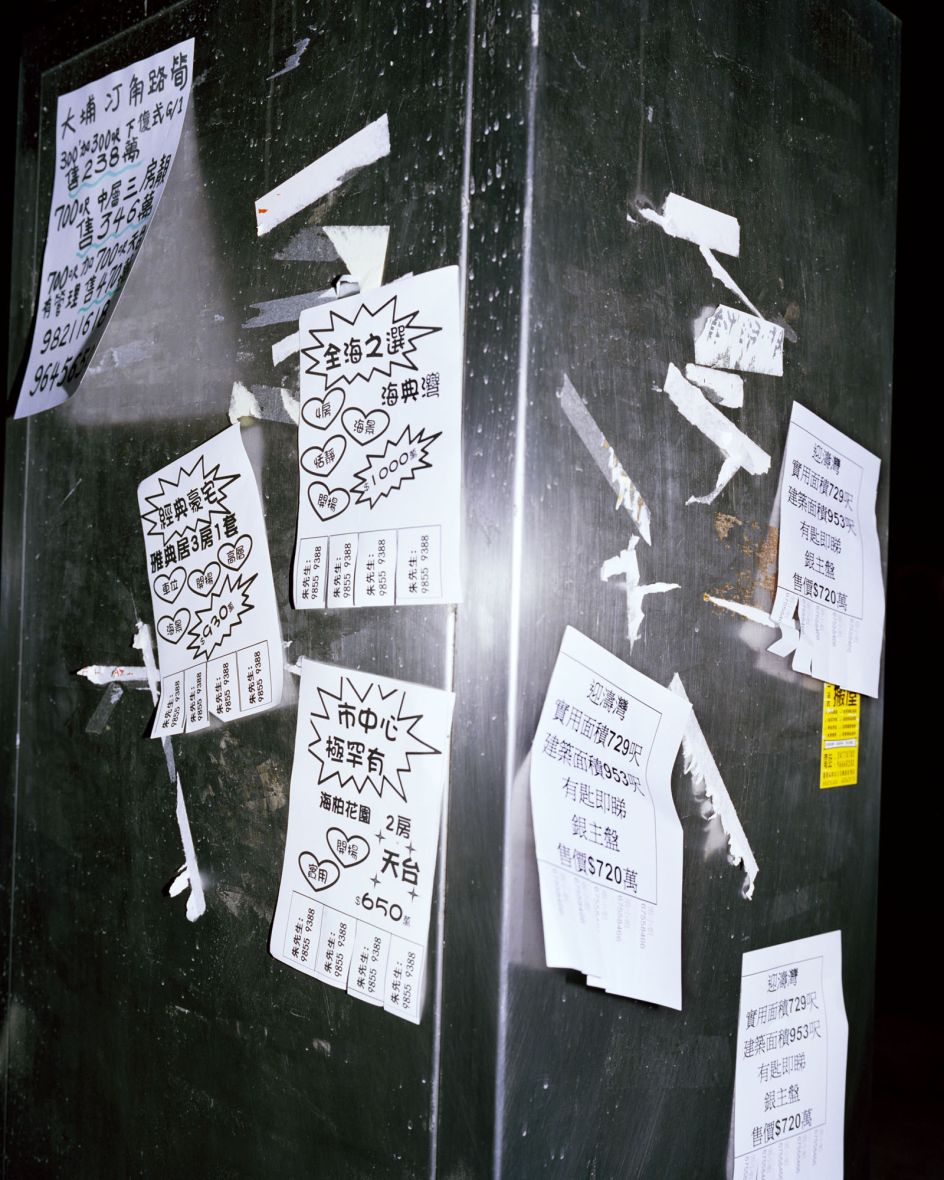 大埔汀角路筍
300'加300呎下復式G/1
售238萬
700呎 中層三房靚
售346萬
700呎加700呎天台
有管理 售470
9821161
964565
全海之選
海典灣
4房
海景
恬靜
開揚
$1000萬
朱先生:
9855 9388
朱先生:
9855 9388
朱先生:
9855 9388
朱先生:
9855 9388
經典豪宅
雅典居3房1套
車位
開揚
$930萬
朱先生:
9855 9388
朱先生:
9855 9388
朱先生:
9855 9388
朱先生:
9855 9388
市中心
極罕有
海柏花園
2房
開揚
實用
天台
$650萬
朱先生:
9855 9388
朱先生:
9855 9388
朱先生:
9855 9388
朱先生:
9855 9388
迎濤灣
實用面積729呎
建築面積953呎
有匙即睇
銀主盤
售價$720萬
迎濤灣
實用面積729呎
建築面積953呎
有匙即睇
銀主盤
售價$720萬
迎濤灣
實用面積729呎
建築面積953呎
有匙即睇
銀主盤
售價$720萬